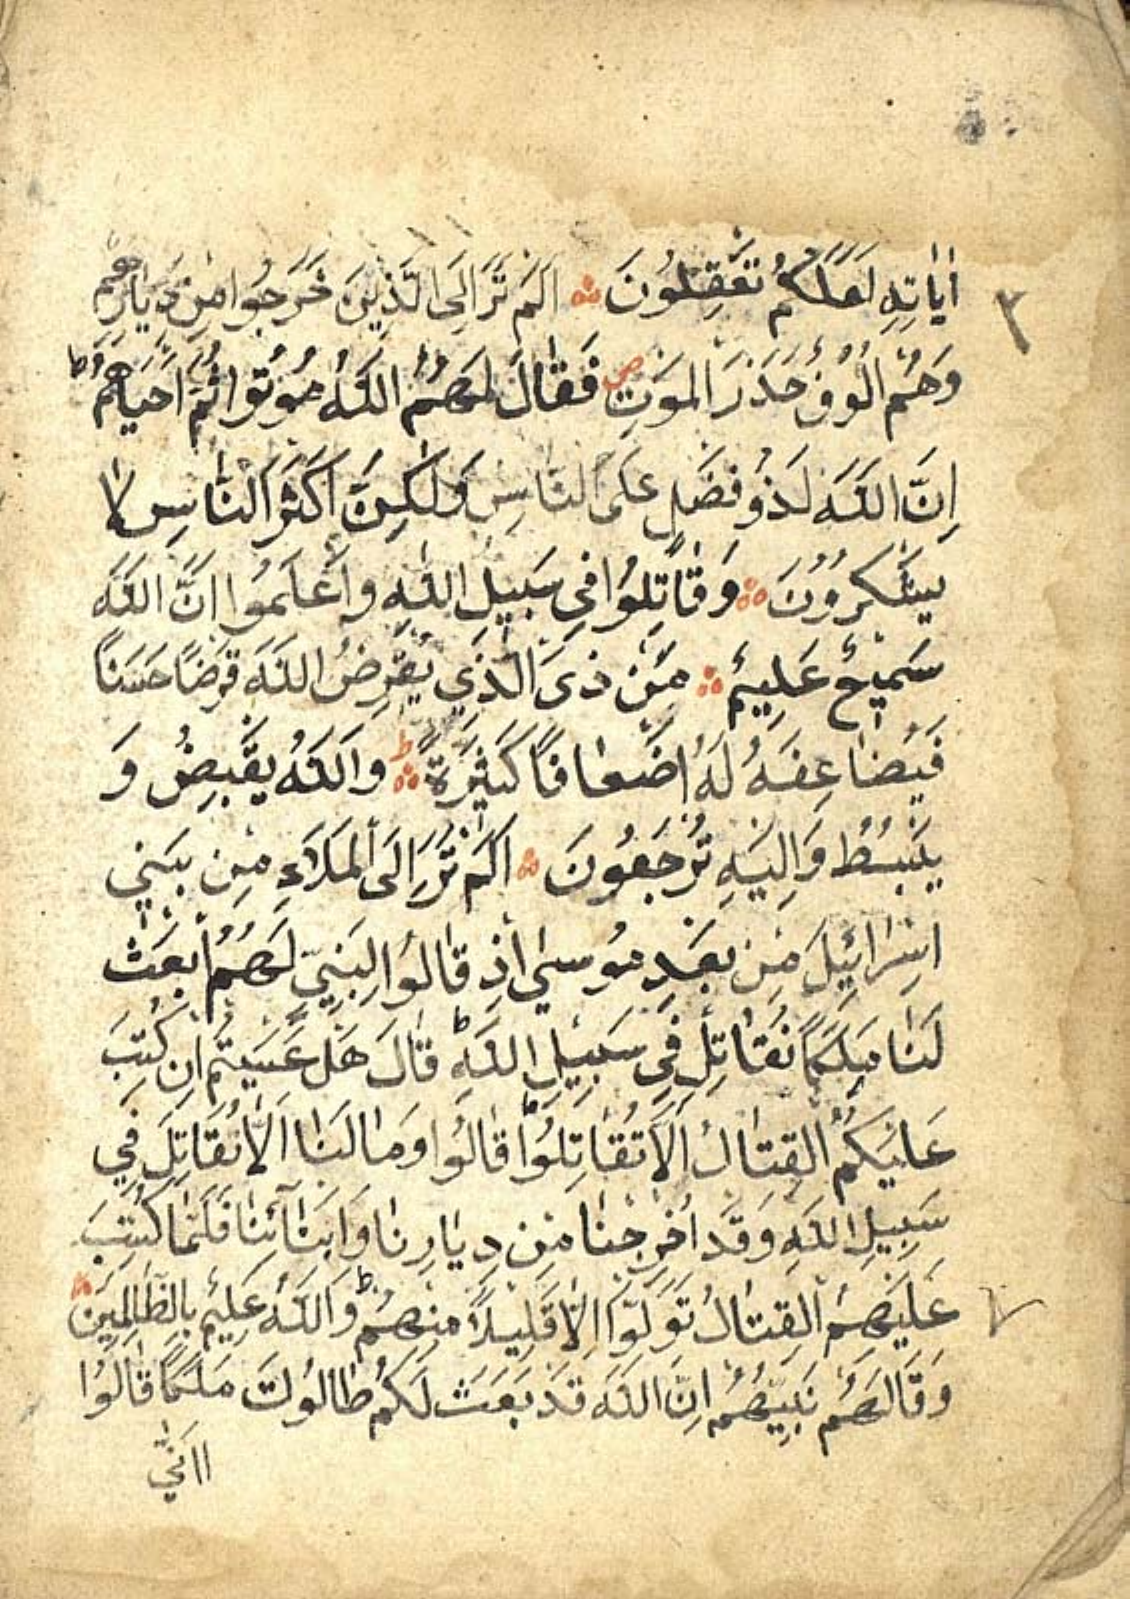 اٰيَاتِهِ لَعَلَّكُمْ تَعْقِلُونَ ۞ اَلَمْ تَرَ اِلَى الَّذِينَ خَرَجُوا مِنْ دِيَارِهِمْ
وَهُمْ اُلُوفٌ حَذَرَ الْمَوْتِ ص فَقَالَ لَهُمُ اللّٰهُ مُوتُوا ثُمَّ اَحْيَاهُمْ ط
اِنَّ اللّٰهَ لَذُو فَضْلٍ عَلَى النَّاسِ وَلٰكِنَّ اَكْثَرَ النَّاسِ لَا
يَشْكُرُونَ ۞ وَقَاتِلُوا فِي سَبِيلِ اللّٰهِ وَاعْلَمُوا اَنَّ اللّٰهَ
سَمِيعٌ عَلِيمٌ ۞ مَنْ ذَى الَّذِي يُقْرِضُ اللّٰهَ قَرْضًا حَسَنًا
فَيُضَاعِفَهُ لَهُ اَضْعَافًا كَثِيرَةً ط ۞ وَاللّٰهُ يَقْبِضُ وَ
يَبْسُطُ وَاِلَيْهِ تُرْجَعُونَ ۞ اَلَمْ تَرَ اِلَى الْمَلَاءِ مِنْ بَنِي
اِسْرَائِيلَ مِنْ بَعْدِ مُوسٰى اِذْ قَالُوا لِنَبِيٍّ لَهُمُ ابْعَثْ
لَنَا مَلِكًا نُقَاتِلْ فِي سَبِيلِ اللّٰهِ ط قَالَ هَلْ عَسَيْتُمْ اِنْ كُتِبَ
عَلَيْكُمُ الْقِتَالُ اَلَّا تُقَاتِلُوا ط قَالُوا وَمَا لَنَا اَلَّا نُقَاتِلَ فِي
سَبِيلِ اللّٰهِ وَقَدْ اُخْرِجْنَا مِنْ دِيَارِنَا وَاَبْنَآئِنَا فَلَمَّا كُتِبَ
عَلَيْهِمُ الْقِتَالُ تَوَلَّوْا اِلَّا قَلِيلًا مِنْهُمْ ط وَاللّٰهُ عَلِيمٌ بِالظَّالِمِينَ ۞
وَقَالَ لَهُمْ نَبِيُّهُمْ اِنَّ اللّٰهَ قَدْ بَعَثَ لَكُمْ طَالُوتَ مَلِكًا قَالُوا
اَنّٰى